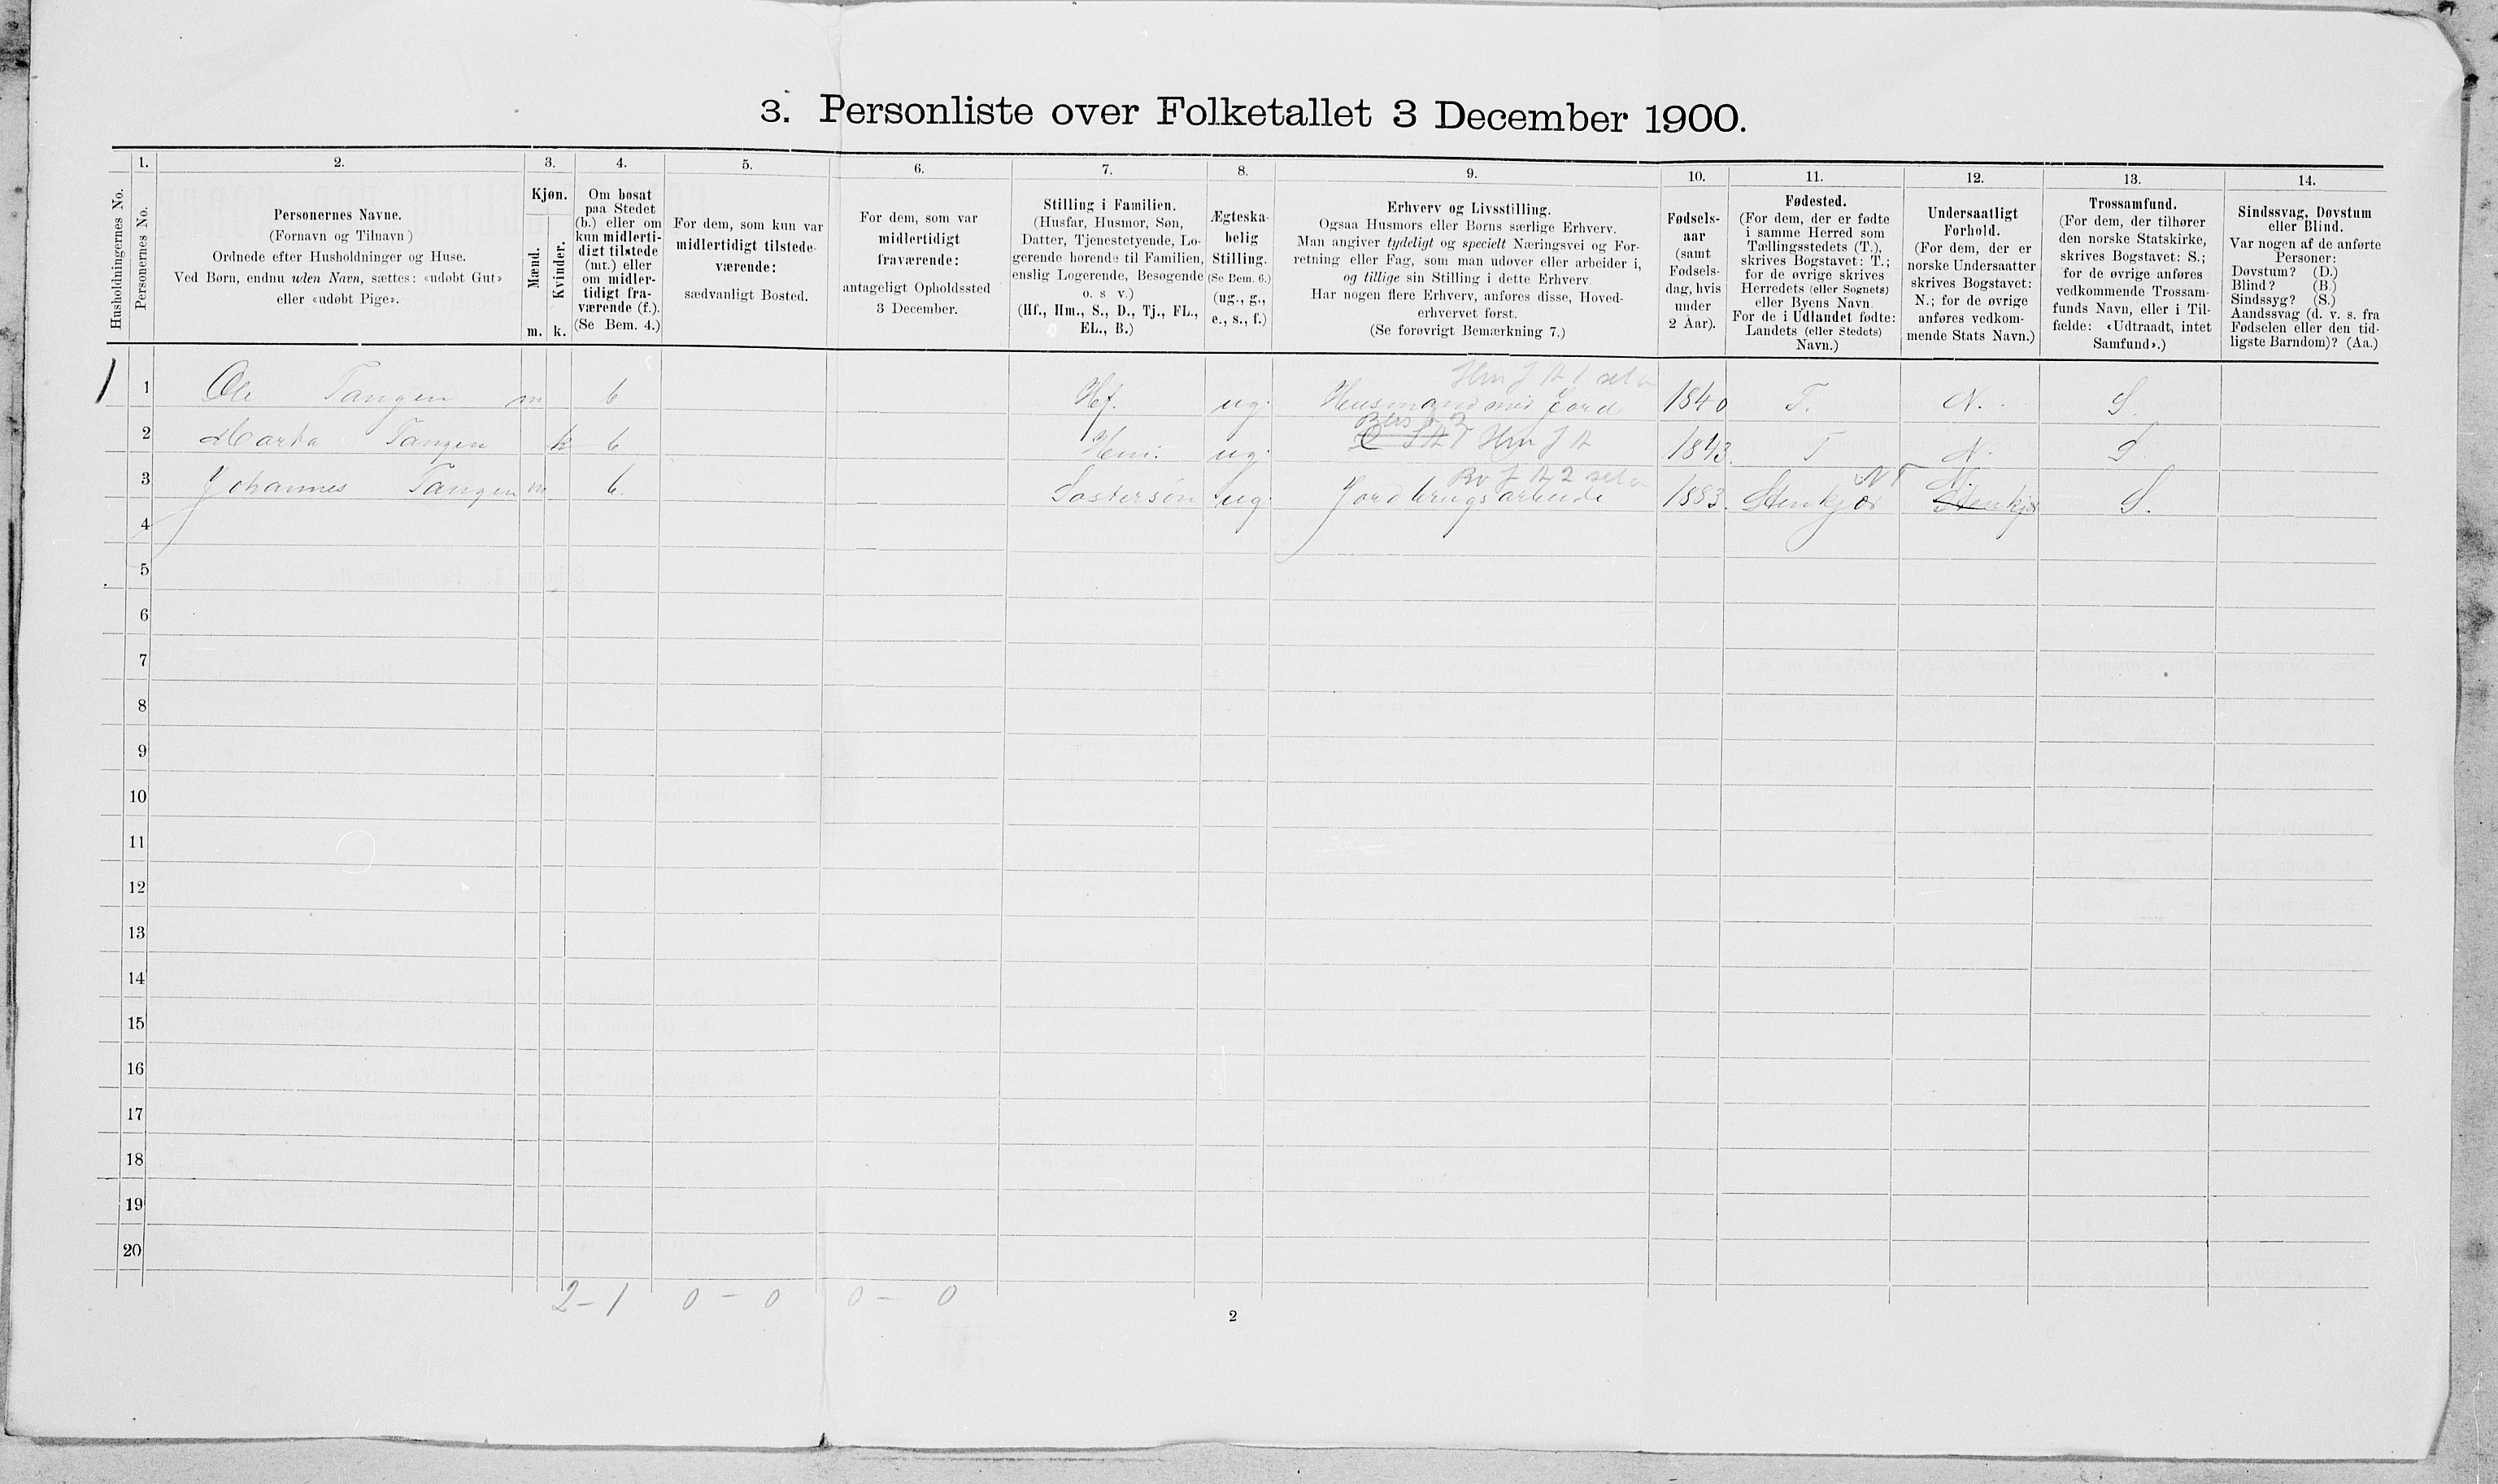 3. Personliste over Folketallet 3 December 1900.
1. 2. 3. 4. 5. 6. 7. 8. 9. 10. 11. 12. 13. 14.
Husholdningernes No.
Personernes No.
Personernes Navne.
(Fornavn og Tilnavn)
Ordnede efter Husholdninger og Huse.
Ved Børn, endnu uden Navn, sættes: «udøbt Gut»
eller «udøbt Pige».
Kjøn.
Mænd.
Kvinder.
m. k.
Om bosat
paa Stedet
(b.) eller om
kun midlerti-
digt tilstede
(mt.) eller
om midler-
tidigt fra-
værende (f.).
(Se Bem. 4.)
For dem, som kun var
midlertidigt tilstede-
værende:
sædvanligt Bosted.
For dem, som var
midlertidigt
fraværende:
antageligt Opholdssted
3 December.
Stilling i Familien.
(Husfar, Husmor, Søn,
Datter, Tjenestetyende, Lo-
gerende hørende til Familien,
enslig Logerende, Besøgende
o. s v.)
(Hf., Hm., S., D., Tj., FL.,
EL., B.)
Ægteska-
belig
Stilling.
(Se Bem. 6.)
(ug., g.,
e., s., f.)
Erhverv og Livsstilling.
Ogsaa Husmors eller Børns særlige Erhverv.
Man angiver tydeligt og specielt Næringsvei og For-
retning eller Fag, som man udøver eller arbeider i,
og tillige sin Stilling i dette Erhverv
Har nogen flere Erhverv, anføres disse, Hoved-
erhvervet først.
(Se forøvrigt Bemærkning 7.)
Fødsels-
aar
(samt
Fødsels-
dag, hvis
under
2 Aar).
Fødested.
(For dem, der er fødte
i samme Herred som
Tællingsstedets (T.),
skrives Bogstavet: T.;
for de øvrige skrives
Herredets (eller Sognets)
eller Byens Navn.
For de i Udlandet fødte:
Landets (eller Stedets)
Navn.)
Undersaatligt
Forhold.
(For dem, der er
norske Undersaatter
skrives Bogstavet:
N.; for de øvrige
anføres vedkom-
mende Stats Navn.)
Trossamfund.
(For dem, der tilhører
den norske Statskirke,
skrives Bogstavet: S.;
for de øvrige anføres
vedkommende Trossam-
funds Navn, eller i Til-
fælde: «Udtraadt, intet
Samfund».)
Sindssvag, Døvstum
eller Blind.
Var nogen af de anførte
Personer:
Døvstum? (D.)
Blind? (B.)
Sindssyg? (S.)
Aandssvag (d. v. s. fra
Fødselen eller den tid-
ligste Barndom)? (Aa.)
1 1 Ole Tangen m b Hf. ug. Husmand med Jord 1840 T. N. S.
2 Marta Tangen k b Hm. ug. 1843. T N. S
3 Johannes Tangen m b. Søstersøn ug. Jordbrugsarbeide 1883. Stenkjær NT N. Stenkjær S.
4
5
6
7
8
9
10
11
12
13
14
15
16
17
18
19
20
2 – 1 0 – 0 0 – 0
2